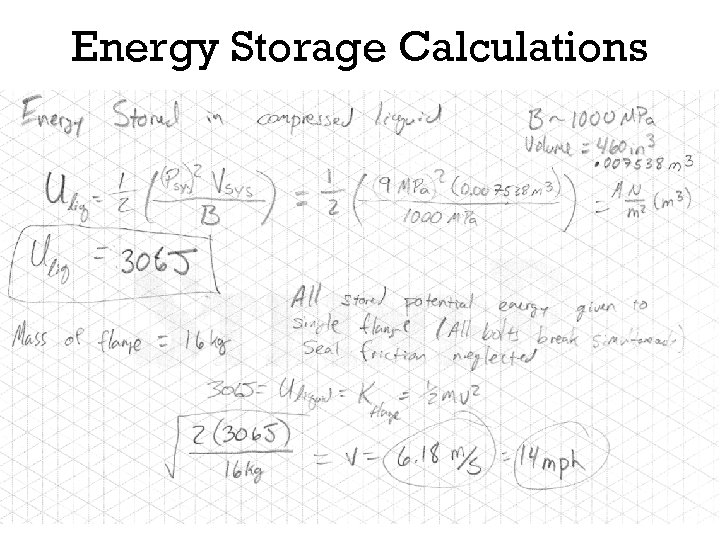 Energy Storage Calculations
Energy Stored in compressed liquid
B ~ 1000 MPa
Volume = 460 in³
.007538 m³
U_liq = 1/2 ((P_sys)² V_sys / B) = 1/2 ((9 MPa)² (0.007538 m³) / 1000 MPa) = N/m² (m³)
U_liq = 306J
All stored potential energy given to
single flange (All bolts break simultaneously)
Seal friction neglected
Mass of flange = 16 kg
306J = U_liquid = K_flange = ½mv²
√(2(306J) / 16kg) = v = 6.18 m/s = 14 mph